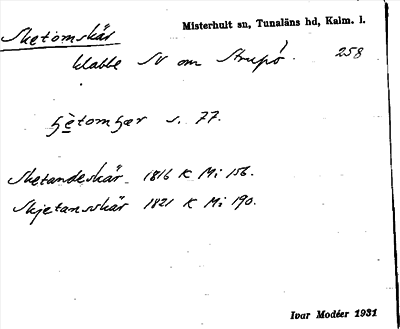 Misterhult sn, Tunaläns hd, Kalm. l.
Sketomskär
klabbe SV om Strupö. 258
s. 77.
Sketandeskär 1816 K Mi 156.
Skjetansskär 1821 K Mi 190.
Ivar Modéer 1931